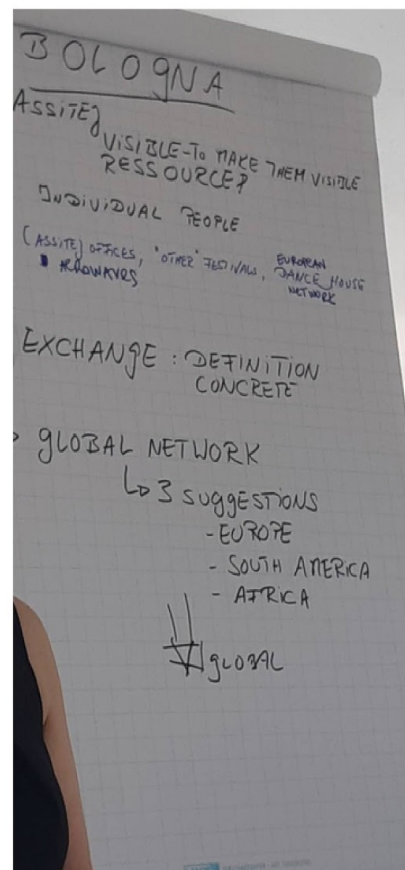 BOLOGNA
ASSITEJ
VISIBLE - TO MAKE THEM VISIBLE
RESSOURCE?
INDIVIDUAL PEOPLE
(ASSITEJ) OFFICES, "OTHER" FESTIVALS, EUROPEAN
DANCE HOUSE
NETWORK
EXCHANGE : DEFINITION
CONCRETE
GLOBAL NETWORK
↳ 3 SUGGESTIONS
- EUROPE
- SOUTH AMERICA
- AFRICA
GLOBAL